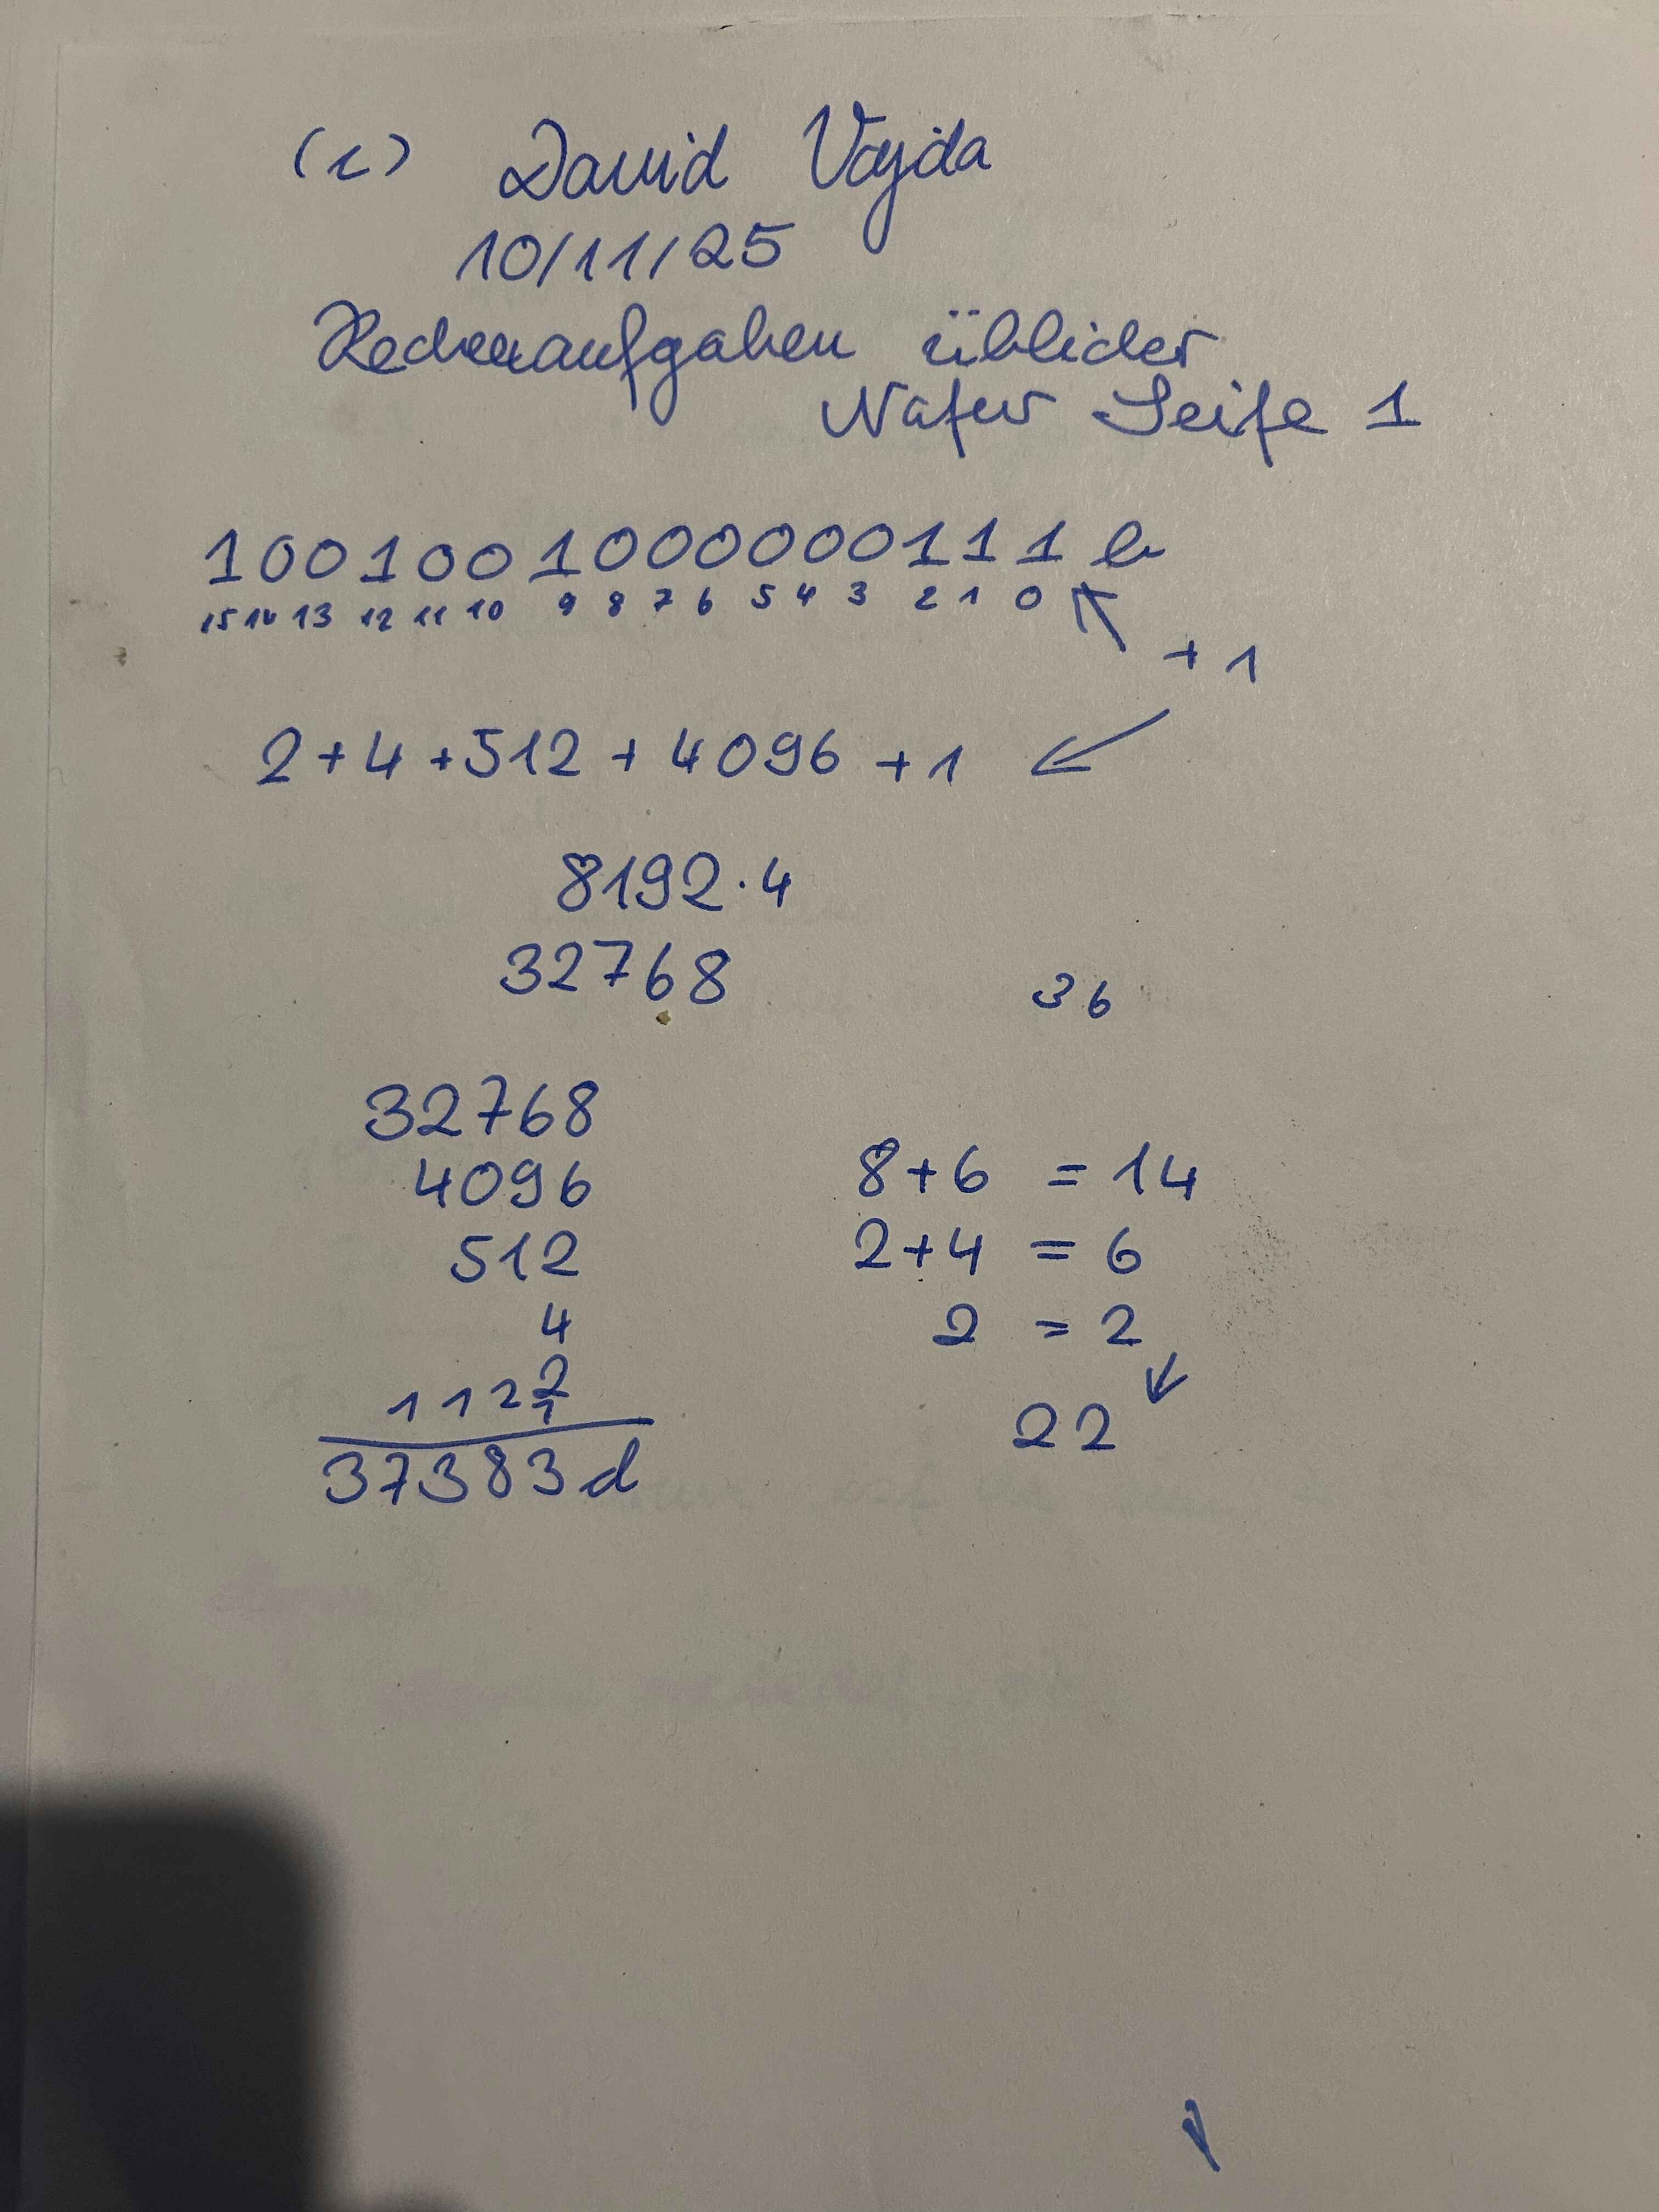 (c) David Vajda
10/11/25
Rechenaufgaben üblicher
Natur Seite 1
1001001000000111 b
15 14 13 12 11 10 9 8 7 6 5 4 3 2 1 0
+ 1
2 + 4 + 512 + 4096 + 1
8192 · 4
32768
36
32768
4096
512
4
2
1 1 2 2 1
37383 d
8 + 6 = 14
2 + 4 = 6
2 = 2
22